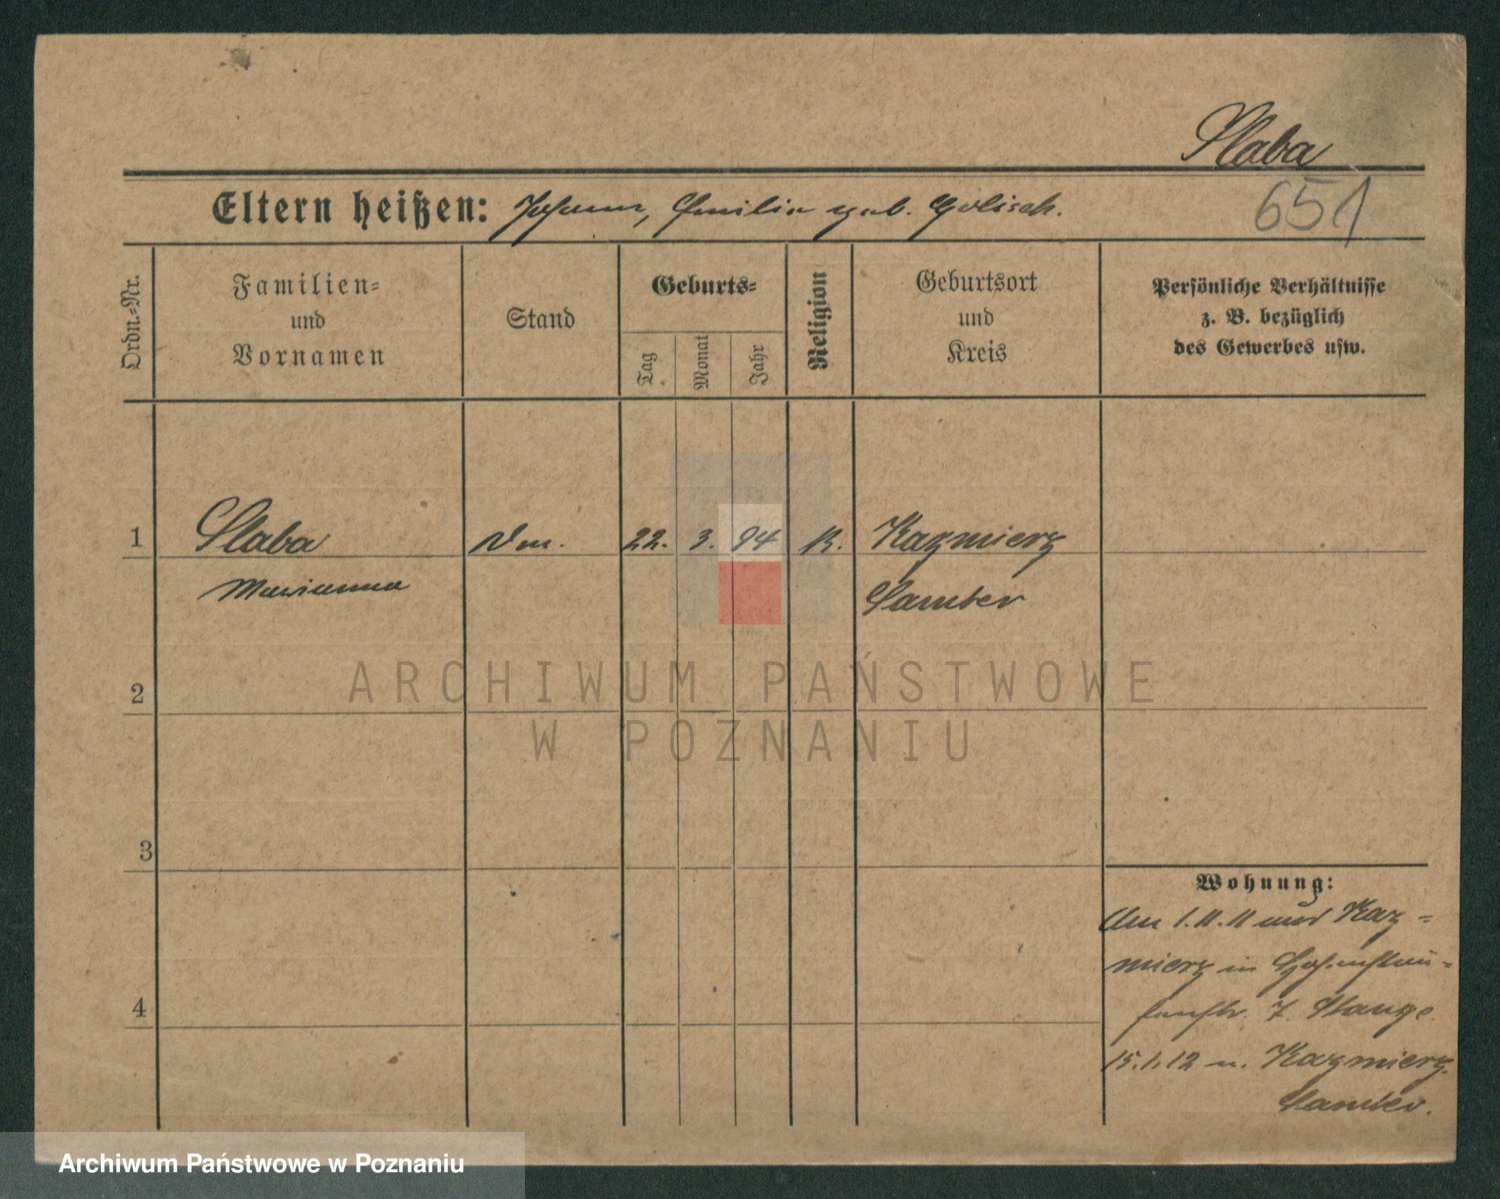 Slaba
651
Eltern heißen: Johann, Emilia geb. Golisch.
Ordn.-Nr.
Familien-
und
Vornamen
Stand
Geburts-
Tag
Monat
Jahr
Religion
Geburtsort
und
Kreis
Persönliche Verhältnisse
z. B. bezüglich
des Gewerbes usw.
1 Slaba 22. 3. 94 K. Kazmierz
Marianna Samter
2
3
4
Wohnung:
Am 1.11.11 aus Kaz-
mierz in Hohenstau-
fenstr. 7. Stange.
15.1.12 n. Kazmierz
Samter.
ARCHIWUM PAŃSTWOWE
W POZNANIU
Archiwum Państwowe w Poznaniu